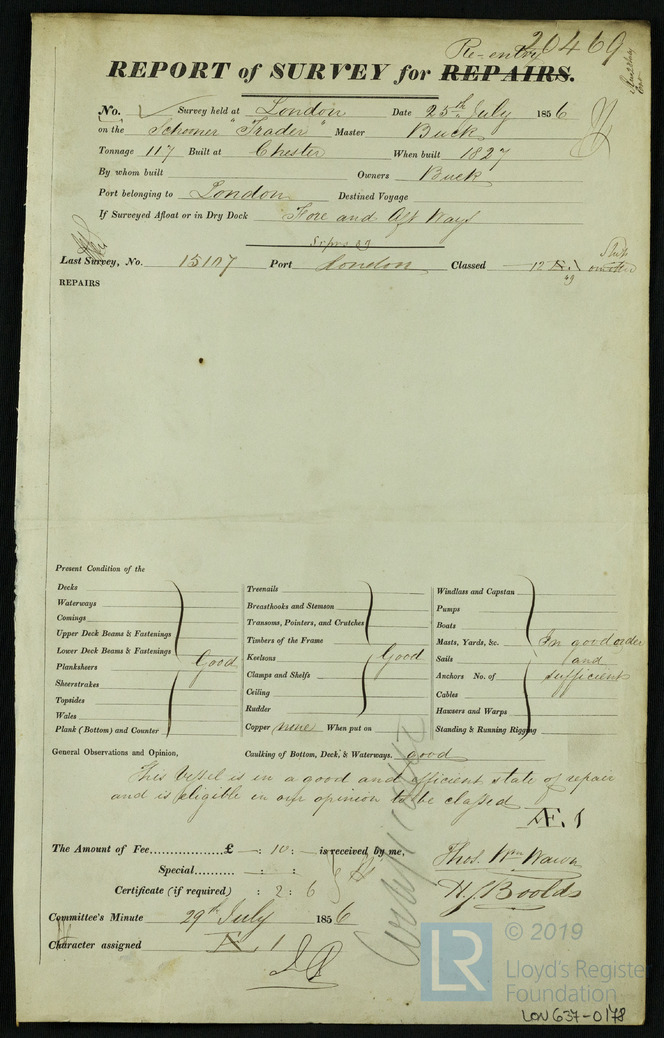 Re-entry 20469
REPORT of SURVEY for REPAIRS.
No. Survey held at London Date 25th July 1856
on the Schooner "Trader" Master Buck
Tonnage 117 Built at Chester When built 1827
By whom built Owners Buck
Port belonging to London Destined Voyage
If Surveyed Afloat or in Dry Dock Fore and Aft Ways
Last Survey, No. 15107 Port London Classed 12 Æ 1
REPAIRS
Present Condition of the
Decks
Waterways
Comings
Upper Deck Beams & Fastenings
Lower Deck Beams & Fastenings
Planksheers Good
Sheerstrakes
Topsides
Wales
Plank (Bottom) and Counter
Treenails
Breasthooks and Stemson
Transoms, Pointers, and Crutches
Timbers of the Frame
Keelsons Good
Clamps and Shelfs
Ceiling
Rudder
Copper none When put on
Windlass and Capstan
Pumps
Boats
Masts, Yards, &c. In good order
Sails and
Anchors No. of sufficient
Cables
Hawsers and Warps
Standing & Running Rigging
General Observations and Opinion, Caulking of Bottom, Deck, & Waterways. good
This Vessel is in a good and efficient state of repair
and is eligible in our opinion to be classed
Æ. 1
The Amount of Fee............... £ — : 10 : — is received by me,
Special........... — : — :
Certificate (if required) : 2 : 6
Thos. Wm Wawn
H. J. Boolds
Certificate
Committee's Minute 29th July 1856
Character assigned Æ 1
LR © 2019
Lloyd's Register
Foundation
LON 637-0178